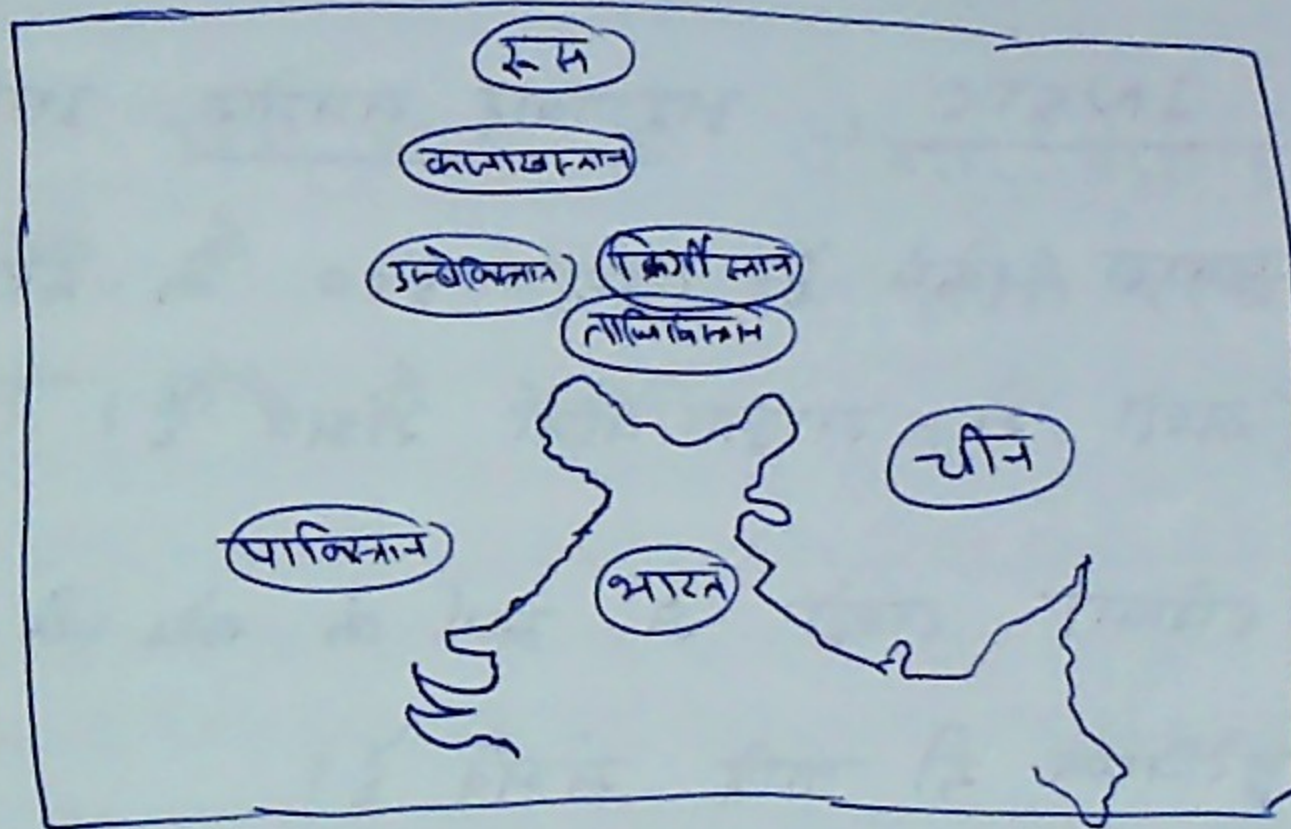 रूस
कजाखस्तान
उज्बेकिस्तान
किर्गीस्तान
ताजिकिस्तान
चीन
पाकिस्तान
भारत